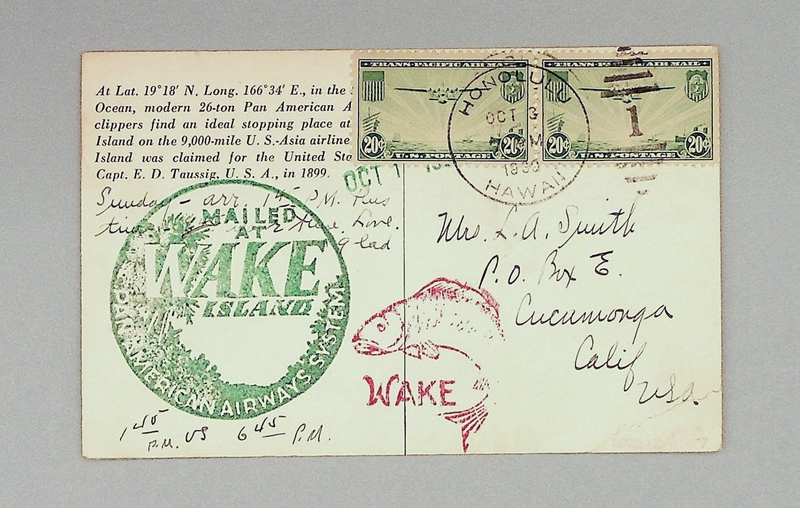 At Lat. 19°18' N. Long. 166°34' E., in the
Ocean, modern 26-ton Pan American A
clippers find an ideal stopping place at
Island on the 9,000-mile U. S.-Asia airline
Island was claimed for the United Sta
Capt. E. D. Taussig, U. S. A., in 1899.
TRANS-PACIFIC AIR MAIL
20¢ U.S. POSTAGE 20¢
TRANS-PACIFIC AIR MAIL
20¢ U.S. POSTAGE 20¢
HONOLULU
OCT 3
M
HAWAII
1
OCT 1
Sunday - arr. 1 45 P.M. this
time. Love.
glad
MAILED
AT
WAKE
ISLAND
PAN AMERICAN AIRWAYS SYSTEM
1 45 P.M. VS 6 45 P.M.
WAKE
Mrs. L. A. Smith
P.O. Box E.
Cucumonga
Calif
USA